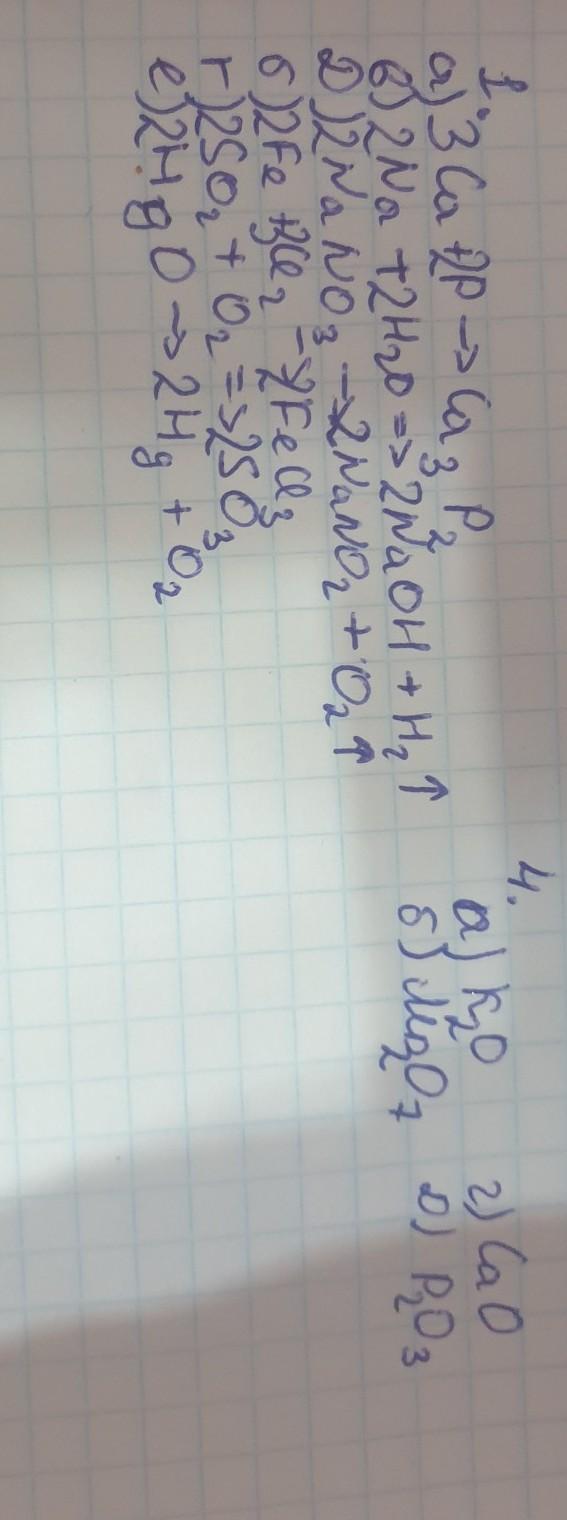 1.
а) 3Ca + 2P → Ca₃P₂
в) 2Na + 2H₂O => 2NaOH + H₂↑
д) 2NaNO₃ → 2NaNO₂ + O₂↑
б) 2Fe + 3Cl₂ → 2FeCl₃
г) 2SO₂ + O₂ => 2SO₃
е) 2HgO → 2Hg + O₂
4.
а) K₂O г) CaO
б) Mn₂O₇ д) P₂O₃